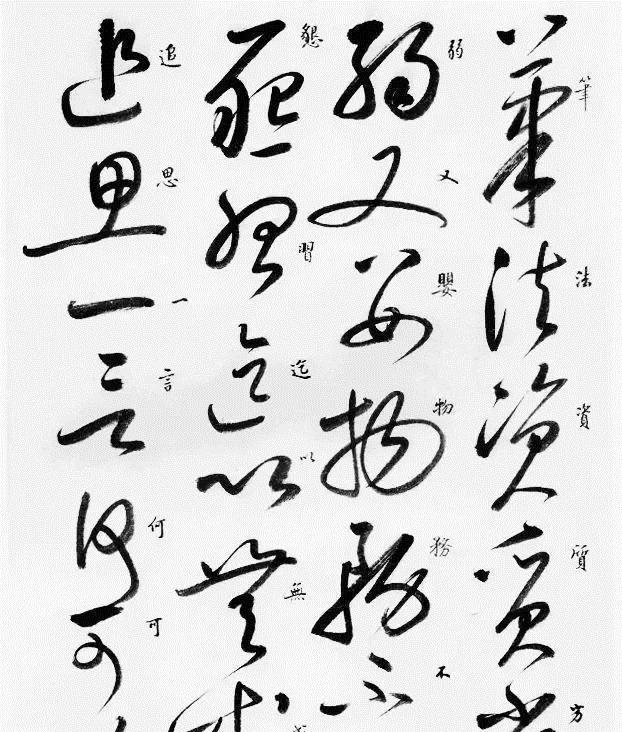 筆法資質
弱又嬰物務不
懇習迄以無
追思一言何可